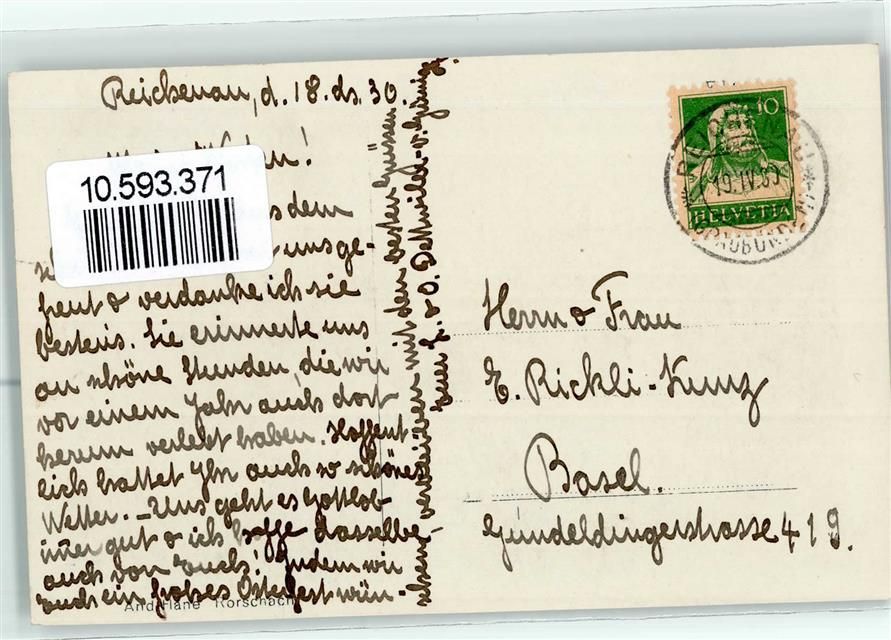 Reichenau, d. 18. ds. 30.
10.593.371
dem
unsge-
freut & verdanke ich sie
bestens. Sie erinnerte uns
an schöne Stunden, die wir
vor einem Jahr auch dort
herum verlebt haben. Hoffent-
lich hattet Ihr auch so schönes
Wetter. - Uns geht es Gottlob
immer gut & ich hoffe dasselbe
auch von Euch! Indem wir
Euch ein frohes Osterfest wün-
schen, verbleiben mit den besten Grüssen
Euer & O. Dettwiler-v.
And. Hane Rorschach
10
HELVETIA
19.IV.30
Herrn & Frau
E. Rickli-Kunz
Basel.
Gundeldingerstrasse 419.